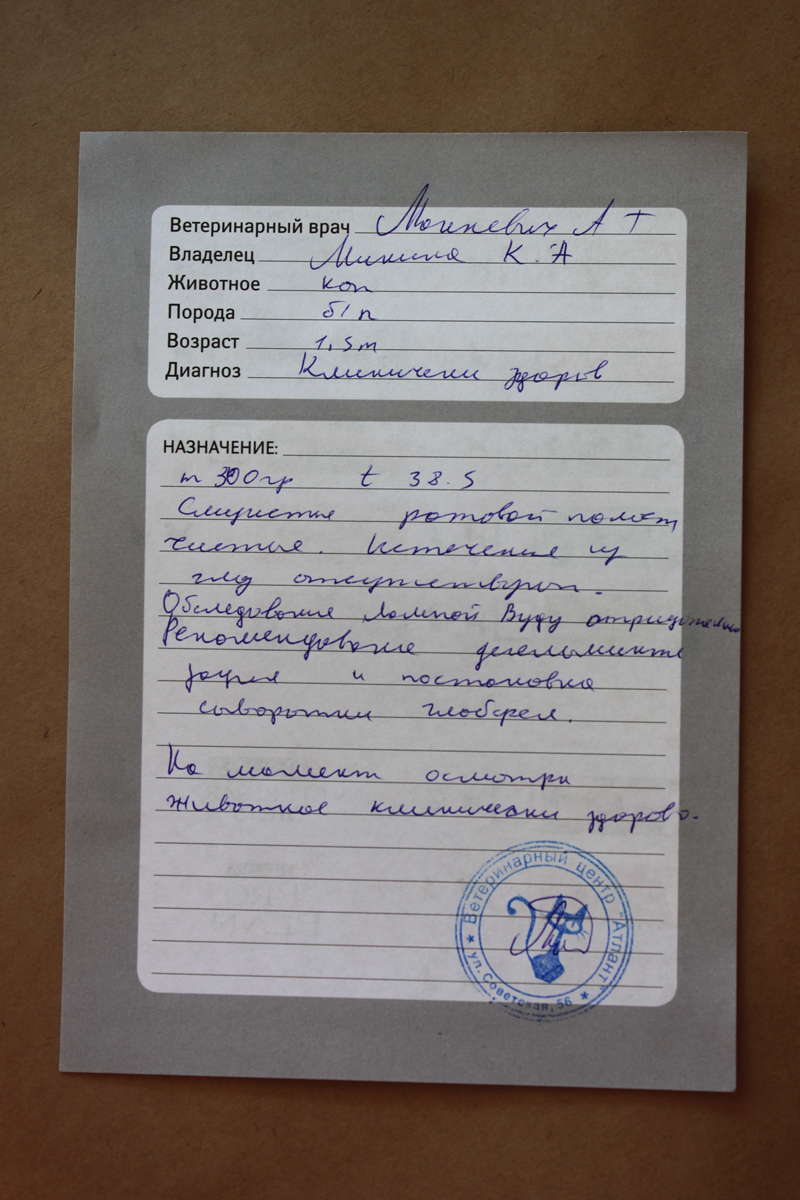 Ветеринарный врач Манкевич А Т
Владелец Микина К.А
Животное кот
Порода б/п
Возраст 1,5m
Диагноз Клинически здоров
НАЗНАЧЕНИЕ:
m 300гр t 38.5
Слизистые ротовой полост
чистые. Истечения из
глаз отсутствуют.
Обследование Лампой Вуду отрицательно
Рекомендование дегельминти
зация и постановка
сыворотки глобфел.
На момент осмотра
животное клинически здорово.
★ Ветеринарный центр "Атлант" ★
ул. Советская, 56